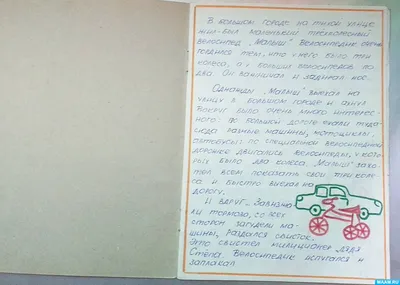 В большом городе на тихой улице
жил-был маленький трёхколёсный
велосипед „Малыш". Велосипедик очень
гордился тем, что у него было три
колеса, а у больших велосипедов по
два. Он важничал и задирал нос.
Однажды „Малыш" выехал на
улицу в большом городе и ахнул.
Вокруг было очень много интерес-
ного: по большой дороге ехали туда-
сюда разные машины, мотоциклы,
автобусы; по специальной велосипедной
дорожке двигались велосипеды, у кото-
рых было два колеса. „Малыш" захо-
тел всем показать свои три колё-
са и быстро выехал на
дорогу.
И вдруг... Завизжа-
ли тормоза, со всех
сторон загудели ма-
шины, раздался свисток.
Это свистел милиционер дядя
Стёпа. Велосипедик испугался и
заплакал
MAAM.RU